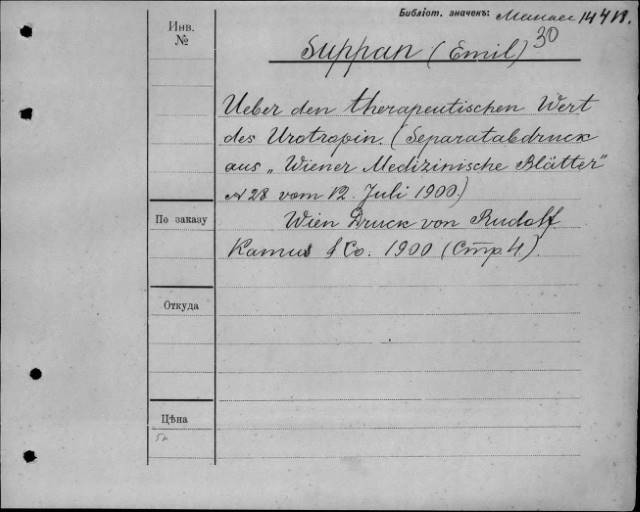 Библіот. значенъ: 14 4 В.
30
Инв.
№
Suppan (Emil)
Ueber den therapeutischen Wert
des Urotropin. (Separatabdruck
aus „Wiener Medizinische Blätter"
N 28 vom 12. Juli 1900)
По заказу
Wien Druck von Rudolf
& Co. 1900 (Стр. 4).
Откуда
Цѣна